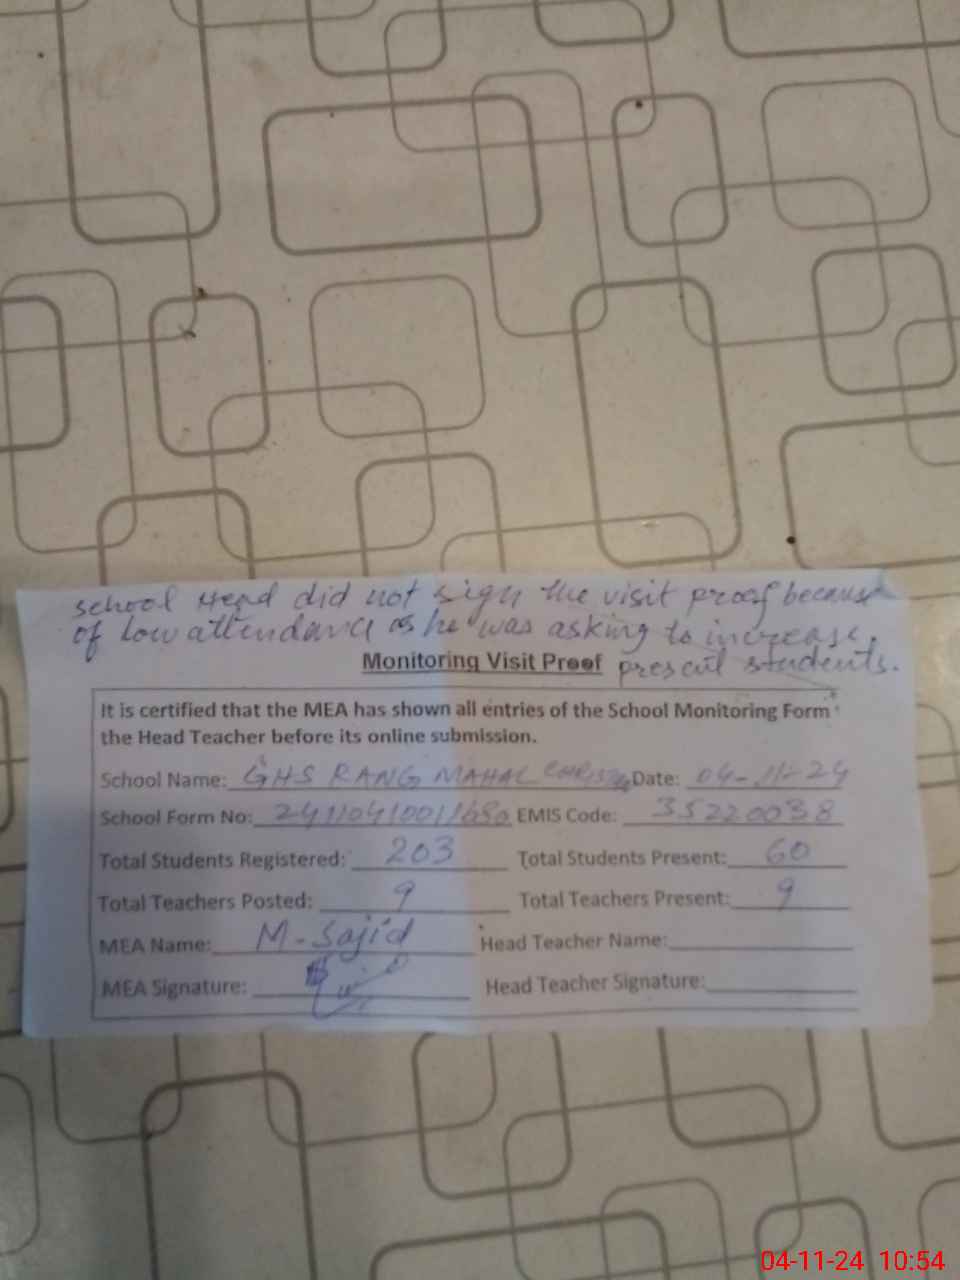 school Head did not sign the visit proof because
of low attendance as he was asking to increase
present students.
Monitoring Visit Proof
It is certified that the MEA has shown all entries of the School Monitoring Form
the Head Teacher before its online submission.
School Name: GHS RANG MAHAL Date: 04-11-24
School Form No: EMIS Code: 35220038
Total Students Registered: 203 Total Students Present: 60
Total Teachers Posted: 9 Total Teachers Present: 9
MEA Name: M-Sajid Head Teacher Name:
MEA Signature: Head Teacher Signature:
04-11-24 10:54